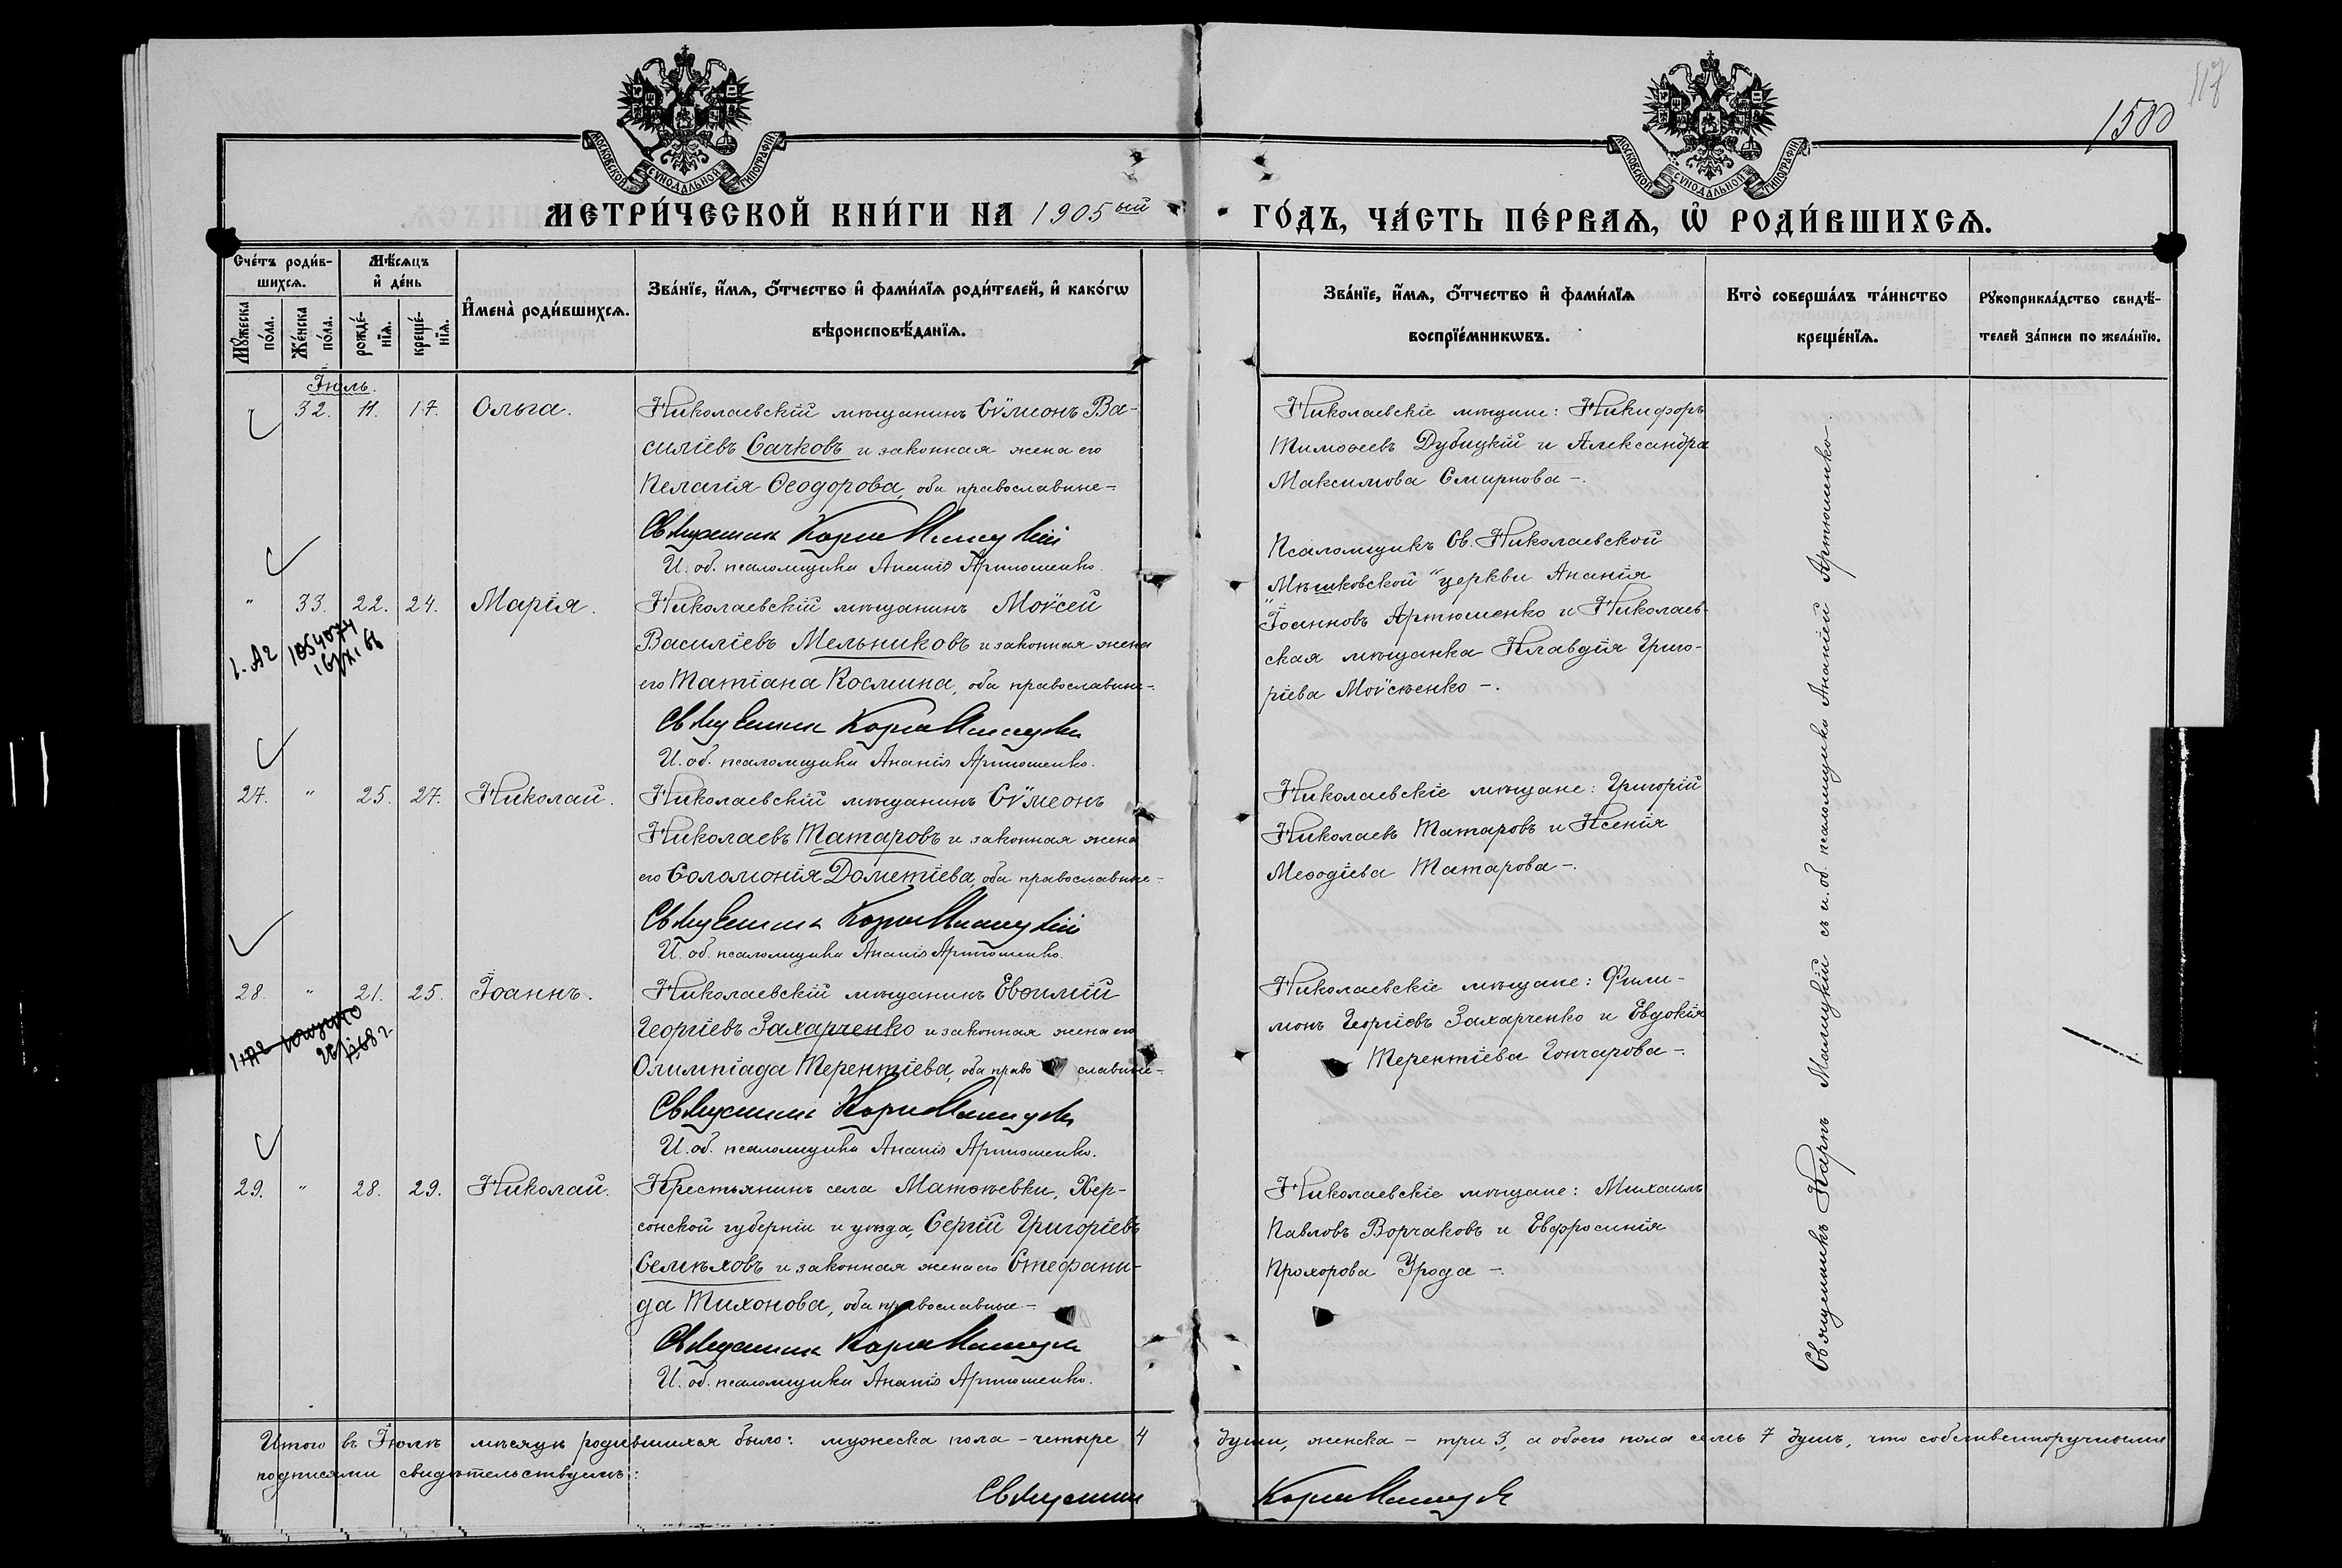 117
1500
МОСКОВСКОЙ СѴНОДАЛЬНОЙ ТИПОГРАФІИ
МОСКОВСКОЙ СѴНОДАЛЬНОЙ ТИПОГРАФІИ
МЕТРИ́ЧЕСКОЙ КНИ́ГИ НА 1905ый
ГО́ДЪ, ЧА́СТЬ ПЕ́РВАѦ, Ѡ҆ РОДИ́ВШИХСѦ.
Сче́тъ роди́в-
шихсѧ.
Мꙋ́жеска по́ла.
Же́нска по́ла.
Мѣ́сѧцъ
и҆ де́нь
рожде́-
нїѧ.
креще́-
нїѧ.
И҆мена̀ роди́вшихсѧ.
Зва́нїе, и҆́мѧ, ѻ҆́тчество и҆ фами́лїѧ роди́телей, и҆ како́гѡ
вѣроисповѣ́данїѧ.
Зва́нїе, и҆́мѧ, ѻ҆́тчество и҆ фами́лїѧ
воспрїе́мникѡвъ.
Кто̀ соверша́лъ та́инство
креще́нїѧ.
Рꙋкоприкла́дство свидѣ́-
телей за́писи по жела́нїю.
Іюль.
" 32. 11. 17. Ольга.
Николаевскій мѣщанинъ Сѵмеонъ Ва-
силіевъ Сачковъ и законная жена его
Пелагія Ѳеодорова, оба православные.
Священникъ Карпъ Малицкій
И. об. псаломщика Ананія Артюшенко.
Николаевскіе мѣщане: Никифоръ
Тимоѳеевъ Дубицкій и Александра
Максимова Смирнова -.
" 33. 22. 24. Марія.
1054074
Николаевскій мѣщанинъ Моѵсей
Василіевъ Мельниковъ и законная жена
его Татіана Космина, оба православные -.
Священникъ Карпъ Малицкій
И. об. псаломщика Ананія Артюшенко.
Псаломщикъ Св. Николаевской
"Мѣшковской" церкви Ананія
Іоанновъ Артюшенко и Николаев-
ская мѣщанка Клавдія Григо-
ріева Моѵсѣенко -.
27. " 25. 27. Николай.
Николаевскій мѣщанинъ Сѵмеонъ
Николаевъ Татаровъ и законная жена
его Соломонія Дометіева, оба православные -
Священникъ Карпъ Малицкій
И. об. псаломщика Ананія Артюшенко.
Николаевскіе мѣщане: Григорій
Николаевъ Татаровъ и Ксенія
Меѳодіева Татарова -.
28. " 21. 25. Іоаннъ.
Николаевскій мѣщанинъ Евѳимій
Георгіевъ Захарченко и законная жена его
Олимпіада Терентіева, оба православные -
Священникъ Карпъ Малицкій
И. об. псаломщика Ананія Артюшенко.
Николаевскіе мѣщане: Фили-
монъ Георгіевъ Захарченко и Евдокія
Терентіева Гончарова -.
29. " 28. 29. Николай.
Крестьянинъ села Матѳѣевки, Хер-
сонской губерніи и уѣзда, Сергій Григоріевъ
Селѣховъ и законная жена его Стефани-
да Тихонова, оба православные -
Священникъ Карпъ Малицкій
И. об. псаломщика Ананія Артюшенко.
Николаевскіе мѣщане: Михаилъ
Павловъ Ворчаковъ и Евфросинія
Прохорова Урода -.
Священникъ Карпъ Малицкій съ и. об. псаломщика Ананіей Артюшенко.
Итого въ Іюлѣ мѣсяцѣ родившихся было: мужеска пола - четыре 4 души, женска - три 3, а обоего пола семь 7 душъ, что собственноручными
подписями свидѣтельствуемъ:
Священникъ Карпъ Малицкій